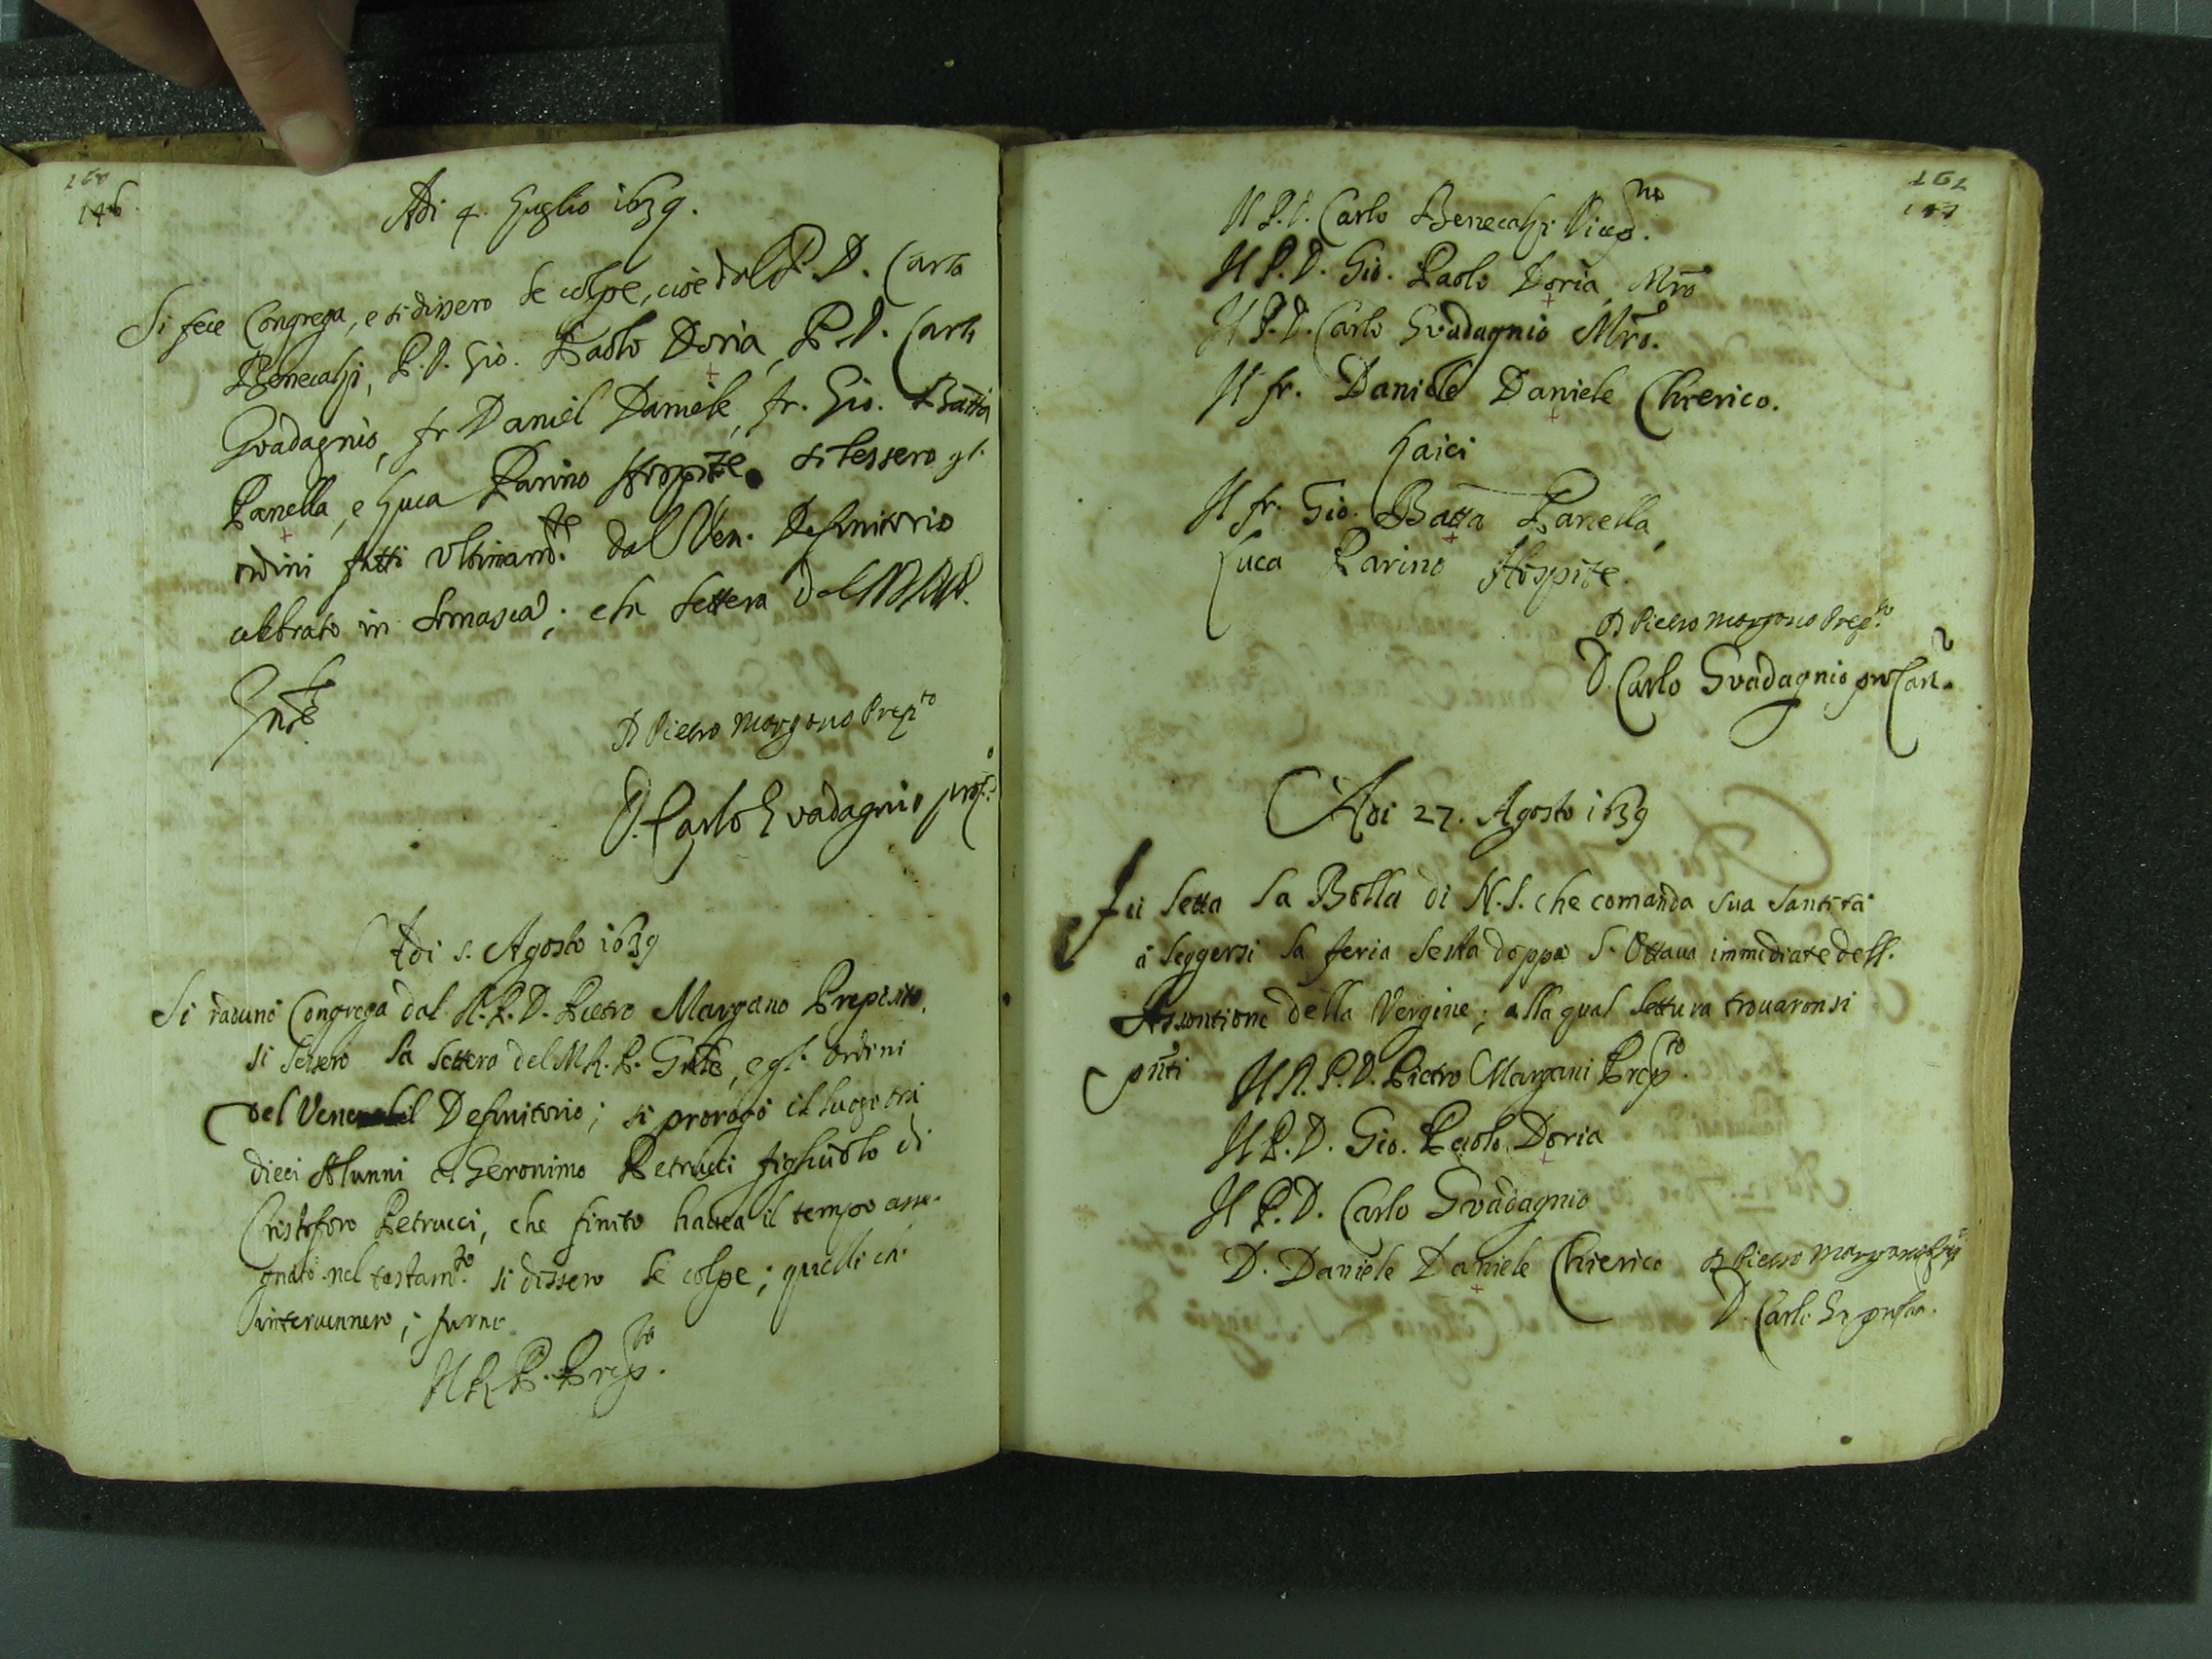 160
146.
Adi 4. Luglio 1639.
Si fece Congrega, e si dissero le colpe, cioè dal P. D. Carlo
Benecalzi, P. D. Gio. Paolo Doria, P. D. Carlo
Gvadagnio, fr Daniel Daniele, fr. Gio. Batta
Panella, e Luca Parino Hospite. si lessero gl'
ordini fatti vltimamte. dal Ven. Definitorio
celebrato in Somasca; e la lettera del
Gnle
D Pietro Morgano Prepto
D. Carlo Gvadagnio
Adi 5. Agosto 1639
Si radunò Congrega dal R. P. D. Pietro Margano Preposito,
si lessero la lettera del M. R. P. Gnle, e gl' ordini
del Venerabil Definitorio; si prorogò il luogo trà
dieci Alunni à Geronimo Petrucci figliuolo di
Cristoforo Petrucci, che finito hauea il tempo asse-
gnato nel testamto. si dissero le colpe; quelli che
interuennero; furno
Il R. P. Prepto.
161
Il P. D. Carlo Benecalzi Vicepto.
Il P. D. Gio. Paolo Doria, Mro
Il P. D. Carlo Gvadagnio Mro.
Il fr. Daniele Daniele Chierico.
Laici
Il fr. Gio. Batta Panella,
Luca Parino Hospite.
D Pietro Morgano Prepto
D. Carlo Gvadagnio pro Can.
Adi 27. Agosto 1639
Fu letta la Bolla di N. S. che comanda sua Santità
à leggersi la feria sesta doppo l' Ottaua immediate dell'
Assontione della Vergine; alla qual lettura trouaronsi
pnti Il R. P. D. Pietro Margani Prepto.
Il P. D. Gio. Paolo Doria
Il P. D. Carlo Gvadagnio
D. Daniele Daniele Chierico D Pietro Morgano
D. Carlo